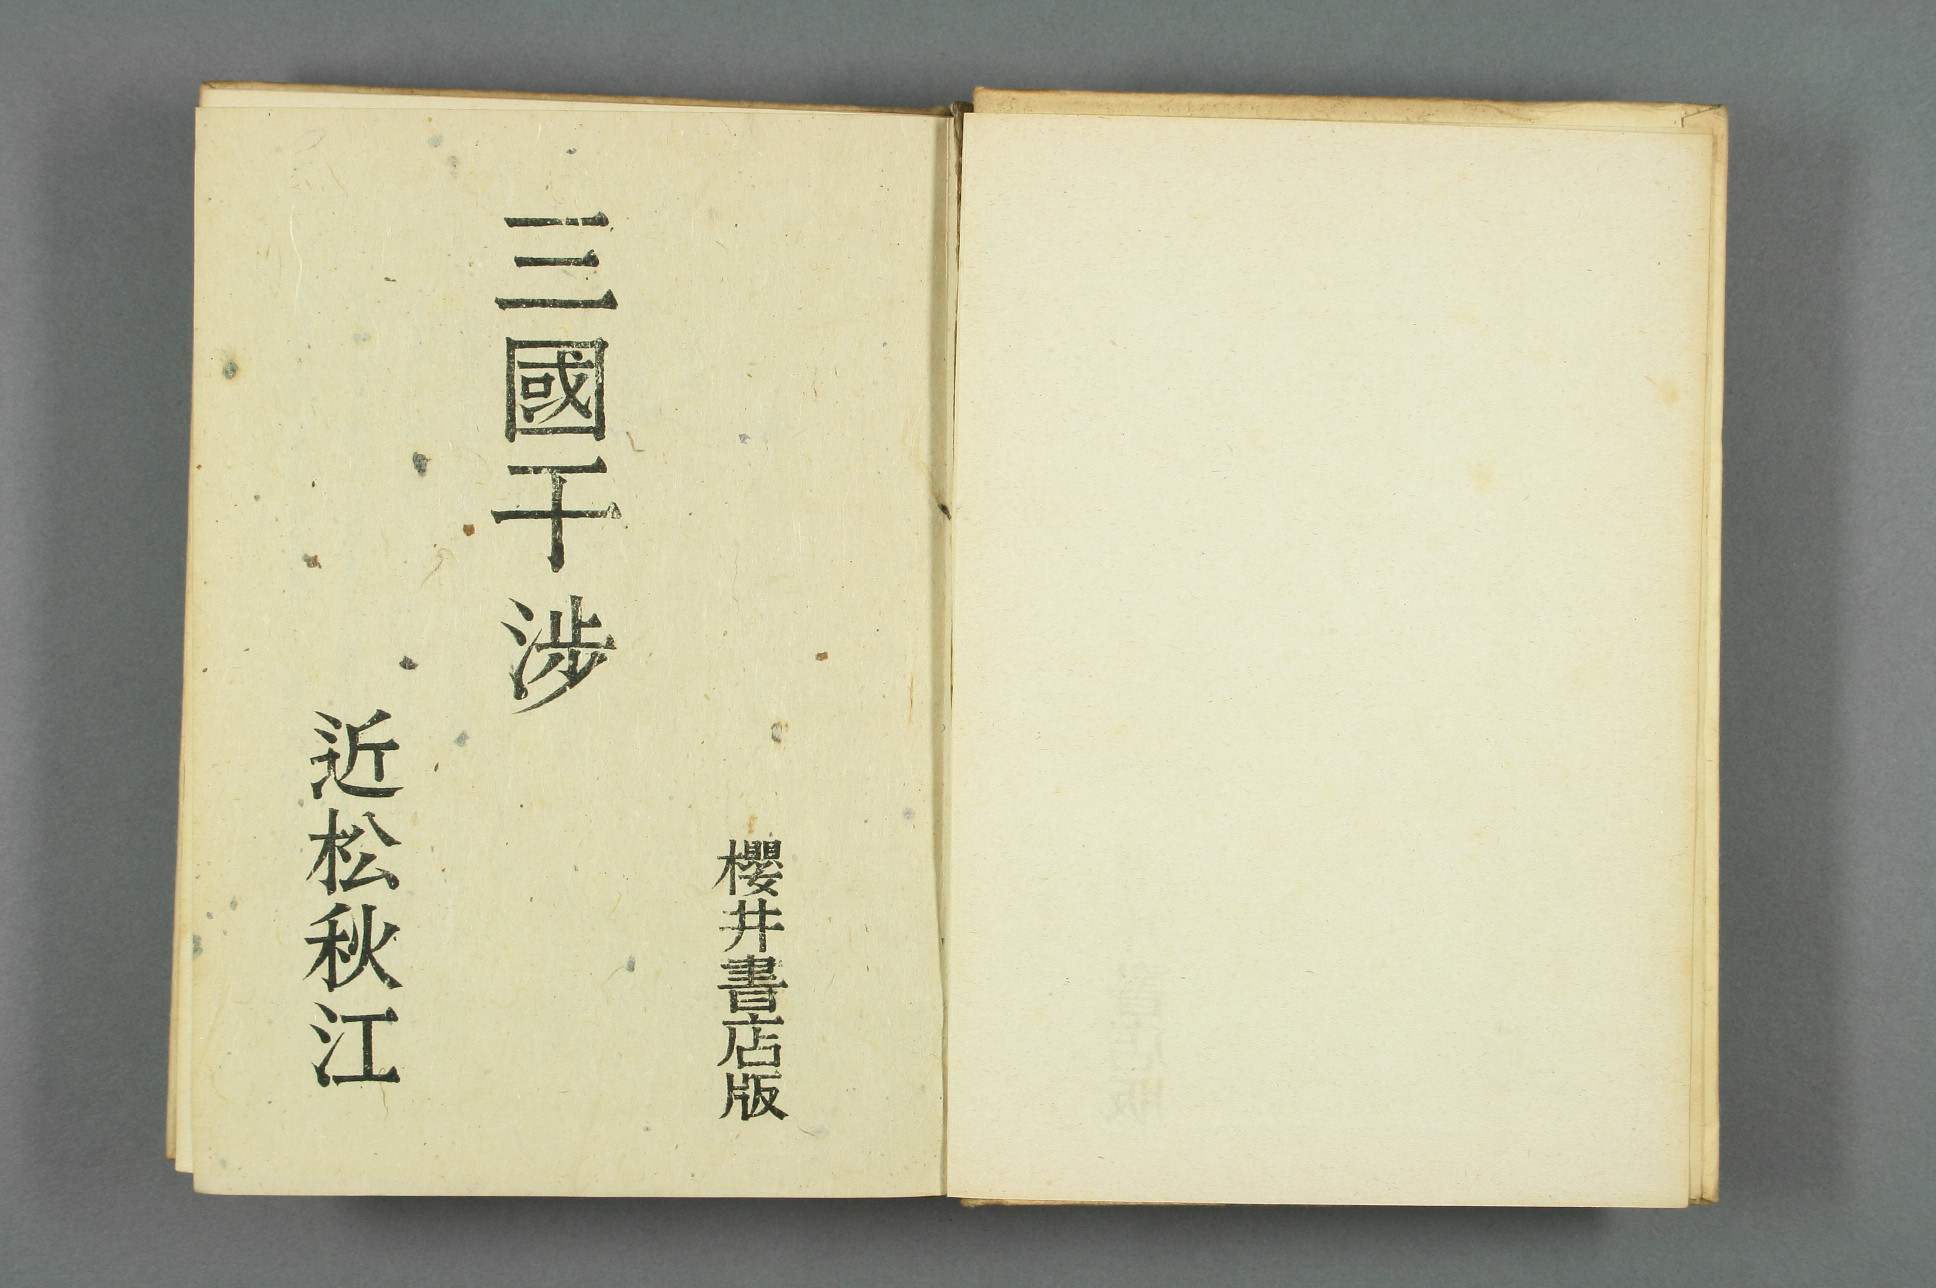 櫻井書店版
三國干渉
近松秋江